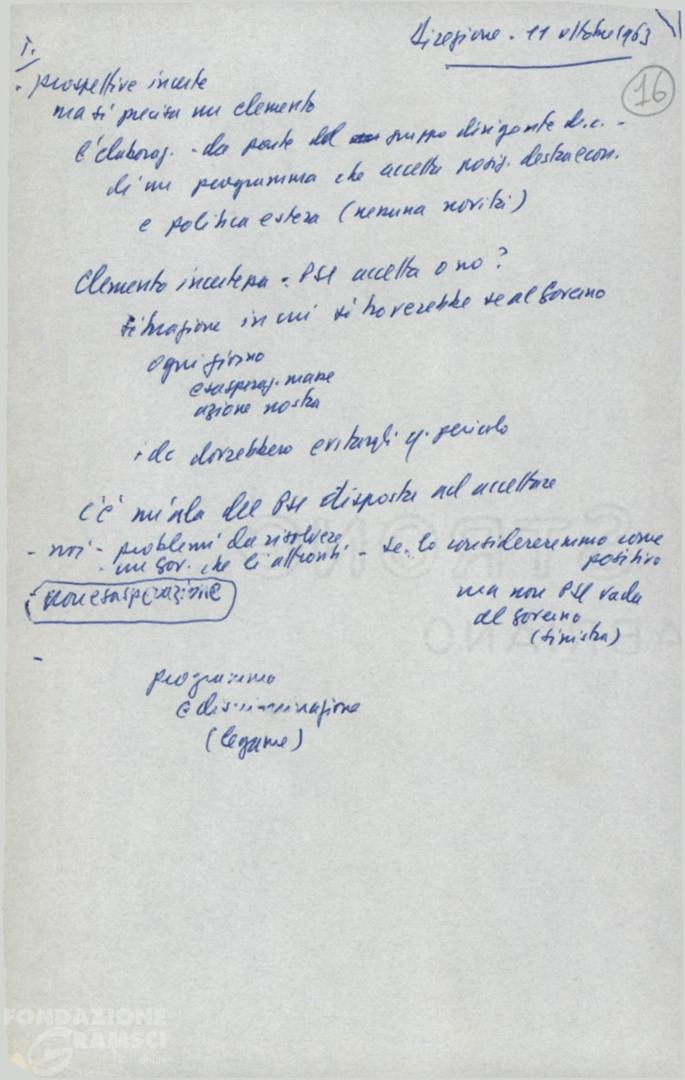 Direzione - 11 ottobre 1963
16
T.
- prospettive incerte
ma si precisa un elemento
l'elaboraz. - da parte del gruppo dirigente d.c. -
di un programma che accetta posiz. destra econ.
e politica estera (nessuna novità)
Elemento incertezza - PSI accetta o no?
situazione in cui si troverebbe se al governo
ogni giorno
esasperaz. masse
azione nostra
i dc dovrebbero evitargli q. pericolo
c'è un'ala del PSI disposta ad accettare
- noi - problemi da risolvere
- un gov. che li affronti - se lo considereremmo come
positivo
- non esasperazione
ma non PSI vada
al governo
(sinistra)
-
programma
e discriminazione
(legame)
FONDAZIONE
GRAMSCI